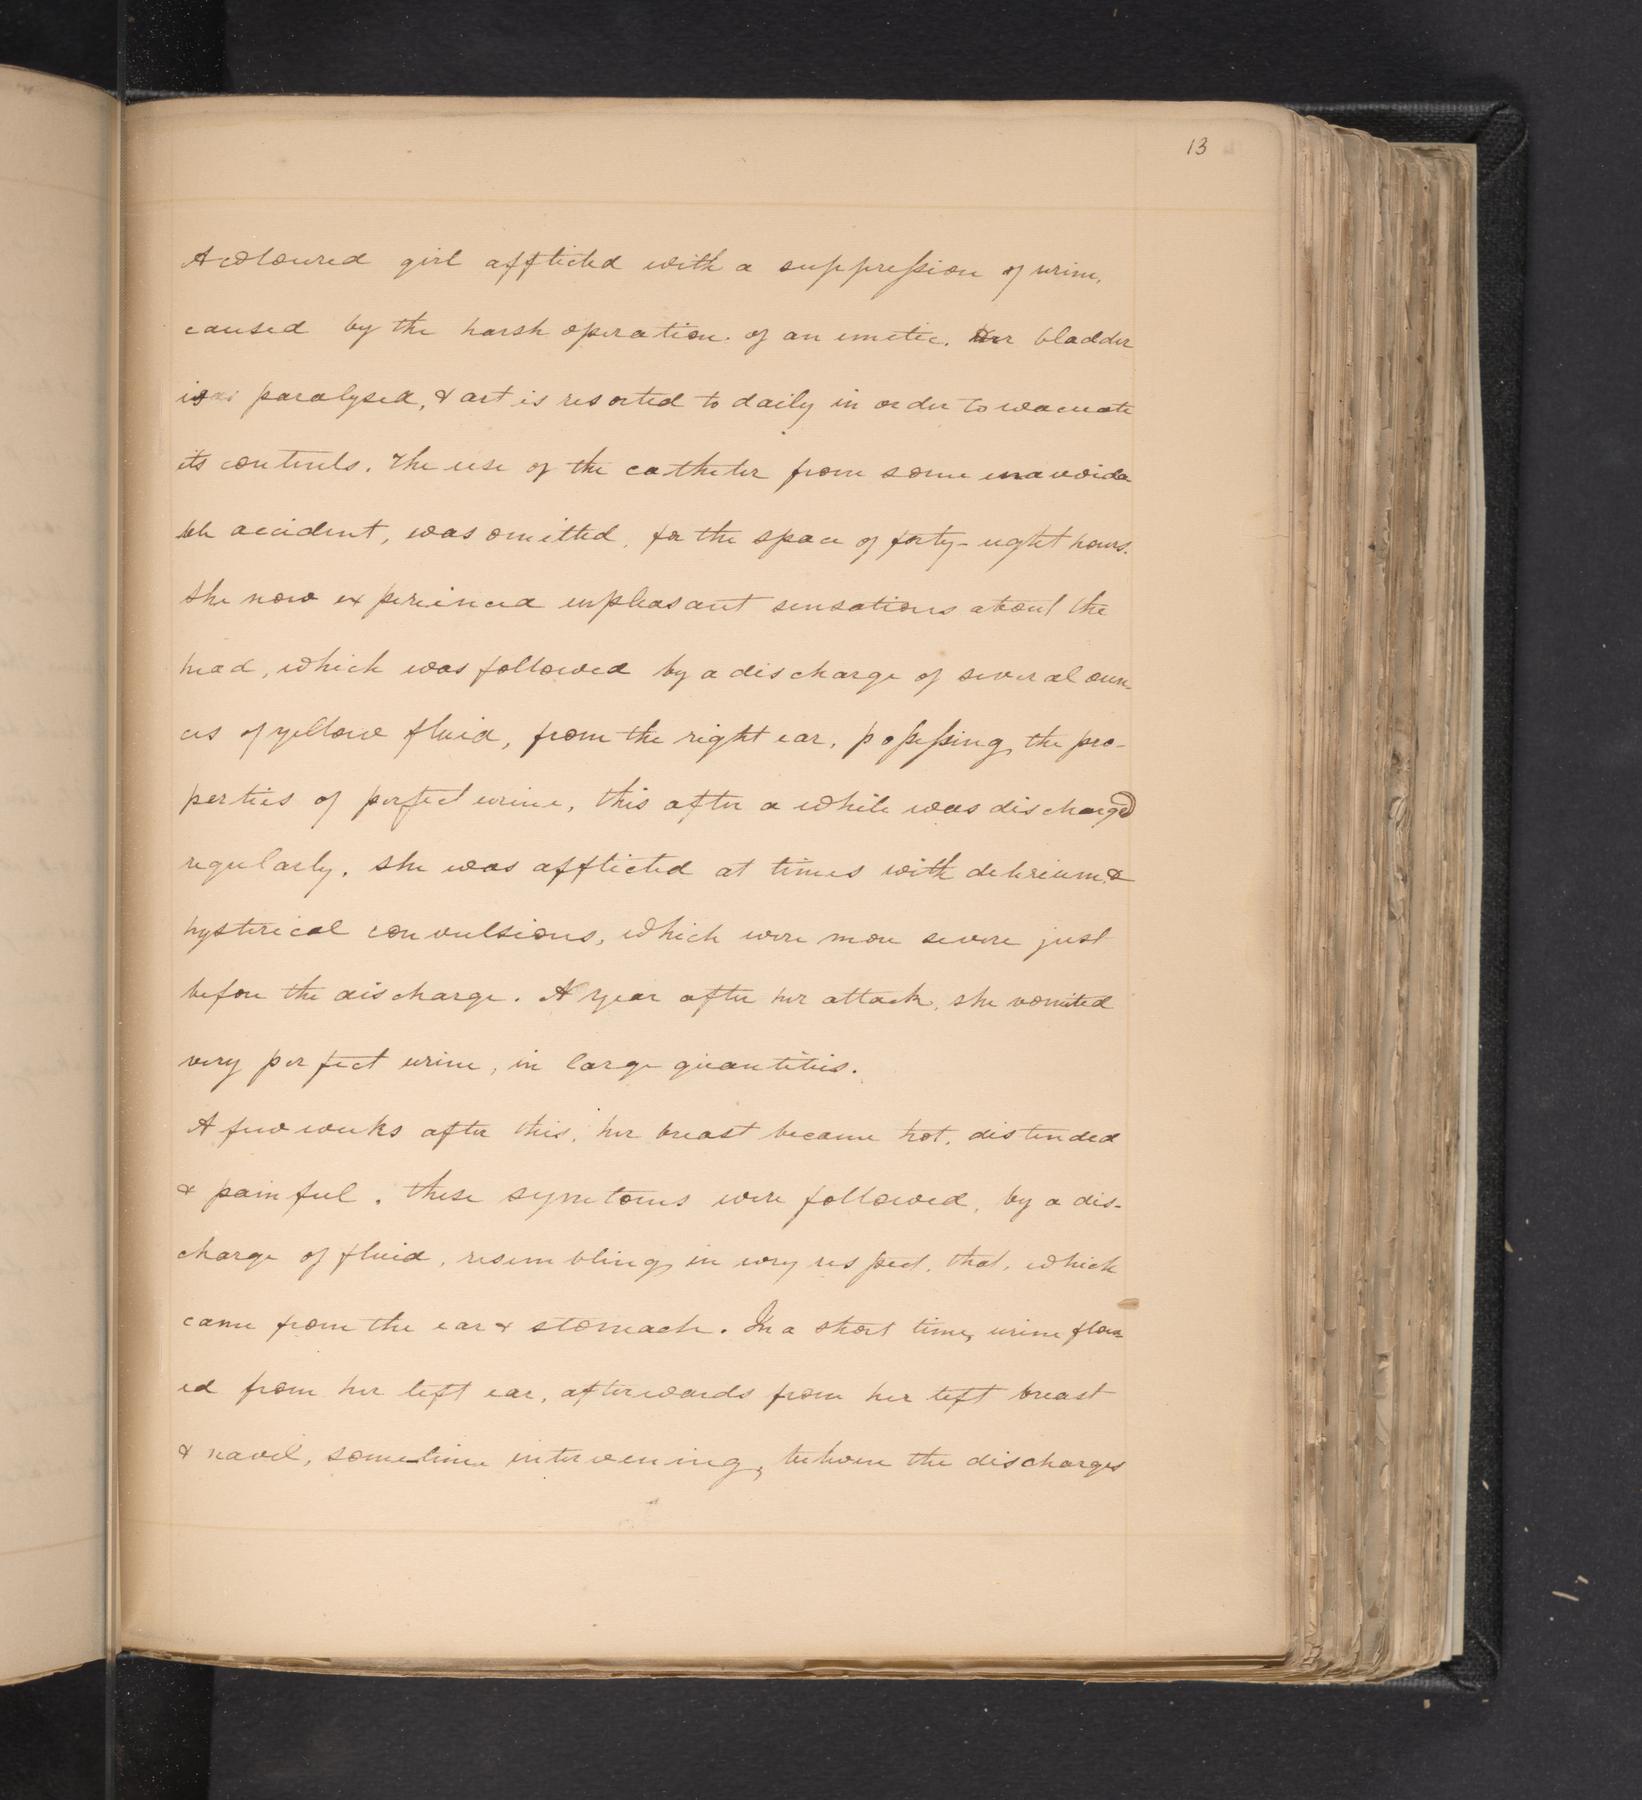 13
A coloured girl afflicted with a suppression of urine,
caused by the harsh operation of an emetic. Her bladder
is paralysed, & art is resorted to daily in order to evacuate
its contents. The use of the catheter from some unavoida
ble accident, was omitted, for the space of forty-eight hours.
She now experienced unpleasant sensations about the
head, which was followed by a discharge of several oun
ces of yellow fluid, from the right ear, possessing, the pro-
perties of perfect urine, this after a while was discharged
regularly. She was afflicted at times with delirium &
hysterical convulsions, which were more severe just
before the discharge. A year after her attack, she vomited
very perfect urine, in large quantities.
A few weeks after this, her breast became hot, distended
& painful. These symptoms were followed, by a dis-
charge of fluid, resembling, in every respect, that, which
came from the ear & stomach. In a short time, urine flow
ed from her left ear, afterwards from her left breast
& navel, sometime intervening, between the discharges